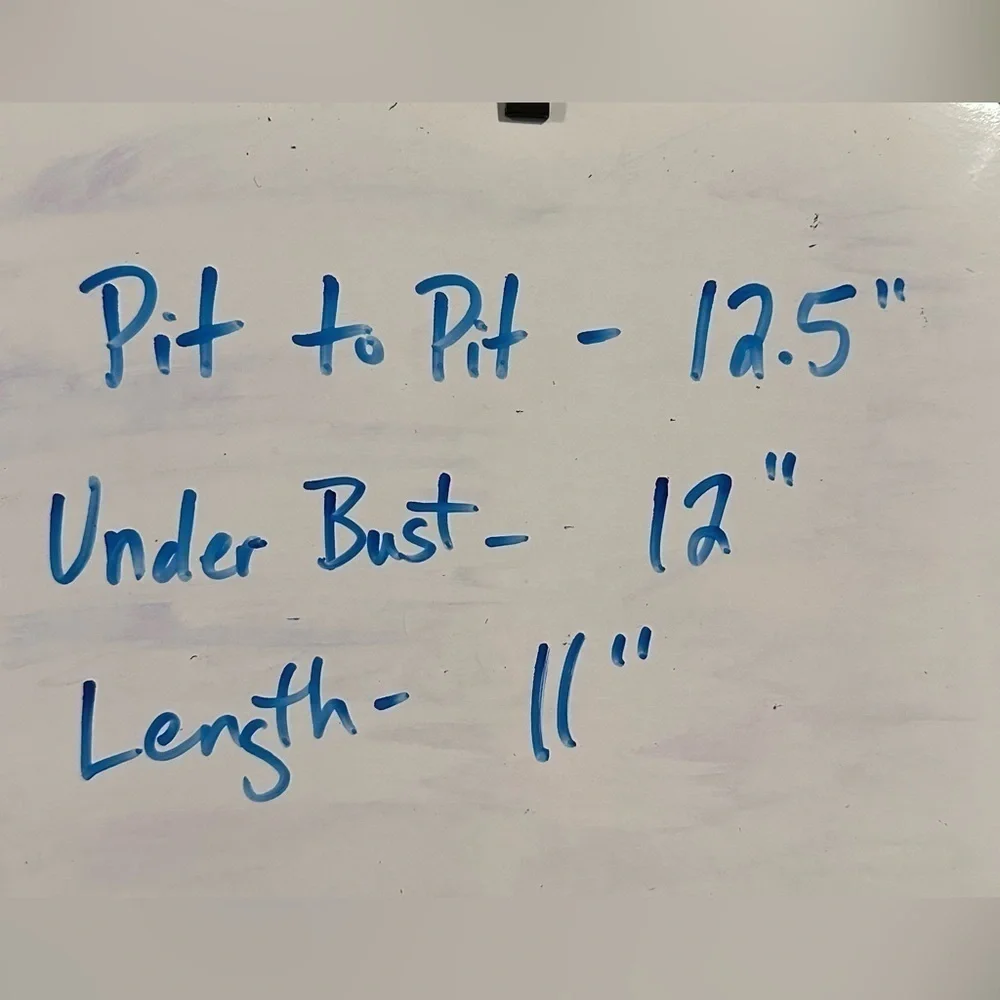 Pit to Pit - 12.5"
Under Bust- 12"
Length- 11"